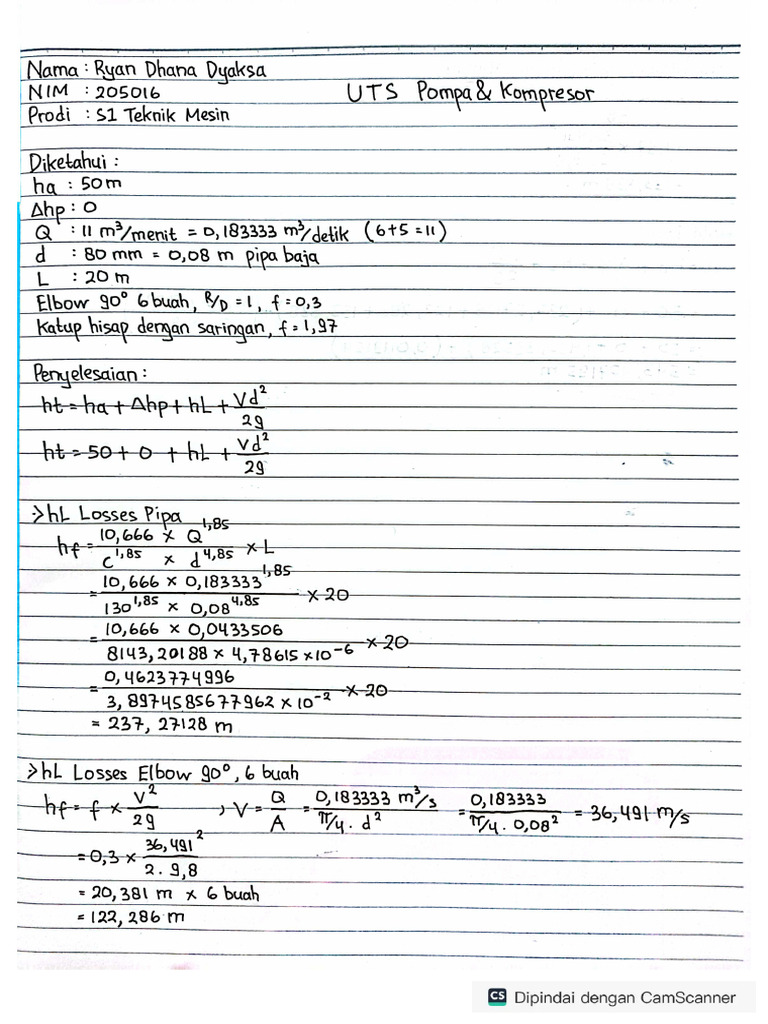 Nama : Ryan Dhana Dyaksa
NIM : 205016 UTS Pompa & Kompresor
Prodi : S1 Teknik Mesin
Diketahui :
ha : 50 m
Δhp : 0
Q : 11 m³/menit = 0,183333 m³/detik (6+5 = 11)
d : 80 mm = 0,08 m pipa baja
L : 20 m
Elbow 90° 6 buah, R/D = 1, f = 0,3
Katup hisap dengan saringan, f = 1,97
Penyelesaian :
ht = ha + Δhp + hL + Vd²/2g
ht = 50 + 0 + hL + Vd²/2g
:> hL Losses Pipa
hf = 10,666 × Q^1,85 / C^1,85 × d^4,85 × L
= 10,666 × 0,183333^1,85 / 130^1,85 × 0,08^4,85 × 20
= 10,666 × 0,0433506 / 8143,20188 × 4,78615 × 10⁻⁶ × 20
= 0,4623774996 / 3,8974585677962 × 10⁻² × 20
= 237,27128 m
:> hL Losses Elbow 90°, 6 buah
hf = f × V²/2g , V = Q/A = 0,183333 m³/s / π/4 . d² = 0,183333 / π/4 . 0,08² = 36,491 m/s
= 0,3 × 36,491² / 2 . 9,8
= 20,381 m × 6 buah
= 122,286 m
CS Dipindai dengan CamScanner